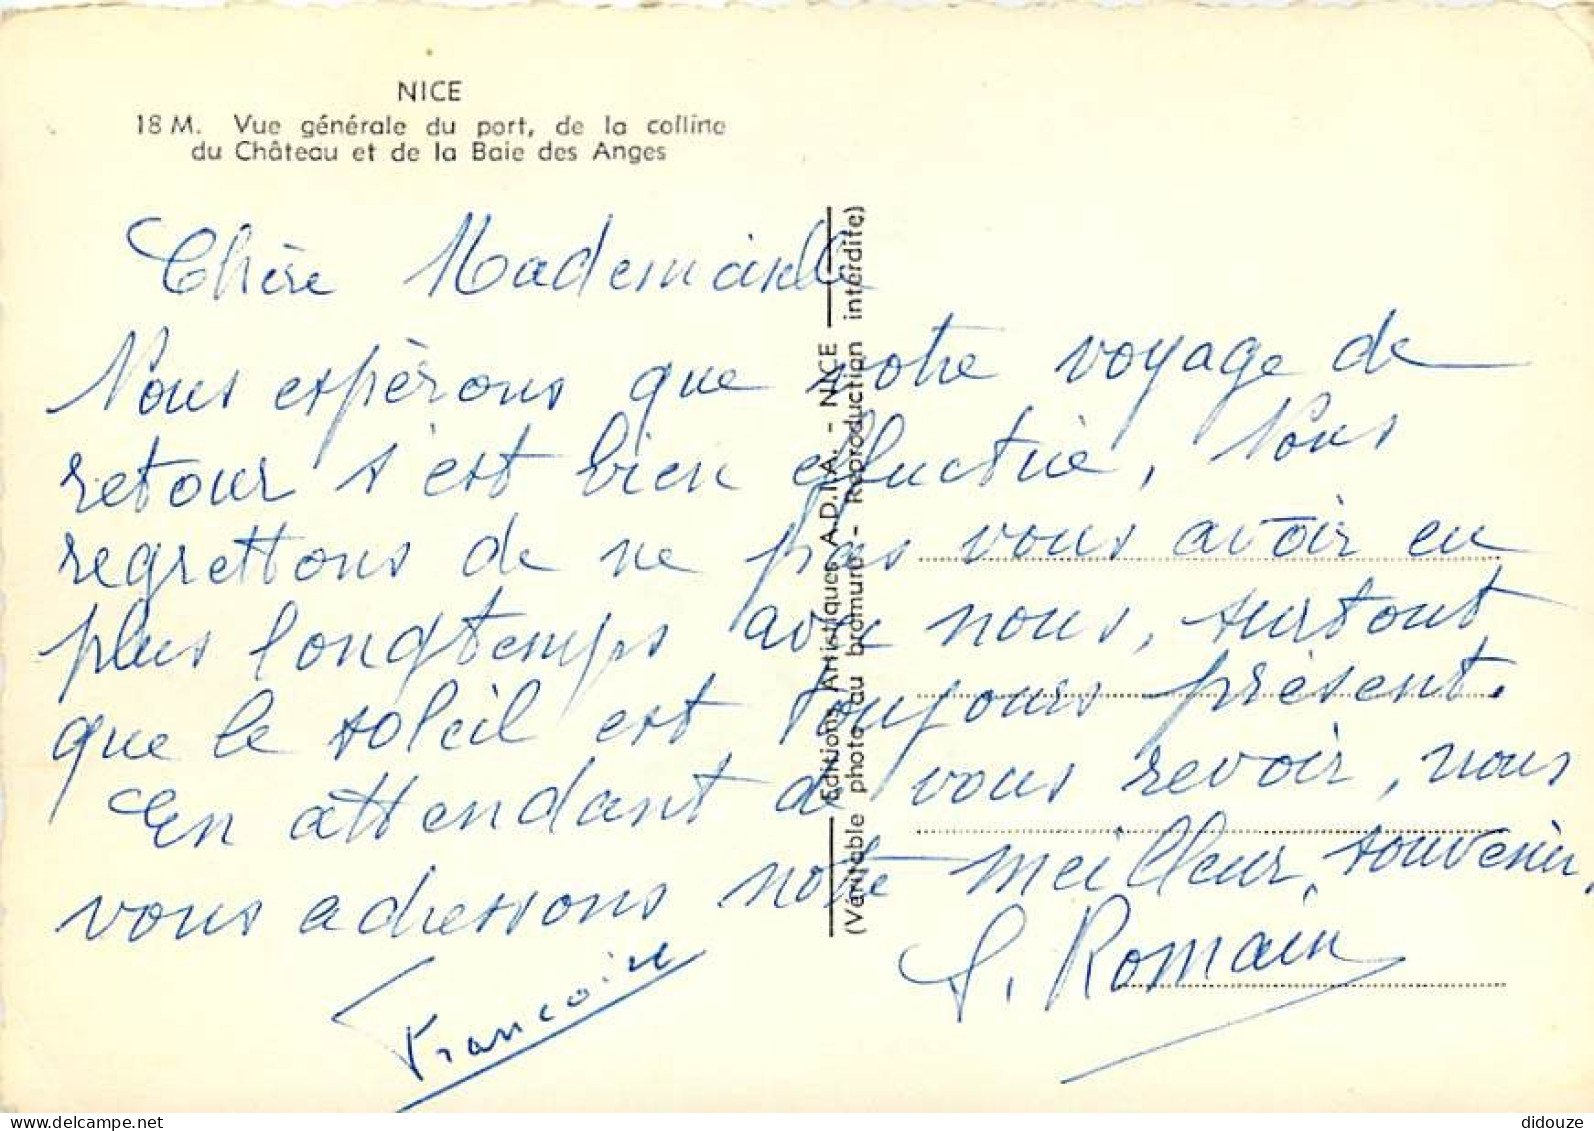 NICE
18 M. Vue générale du port, de la colline
du Château et de la Baie des Anges
Chère Mademoiselle
Nous espèrons que votre voyage de
retour s'est bien effuctué, Nous
regrettons de ne pas vous avoir eu
plus longtemps avec nous, surtout
que le soleil est toujours présent.
En attendant de vous revoir, nous
vous adressons notre meilleur, souvenir.
S. Romain
Françoise
Editions Artistiques A.D.I.A. - NICE
(Véritable photo au bromure - Reproduction interdite)
didouze